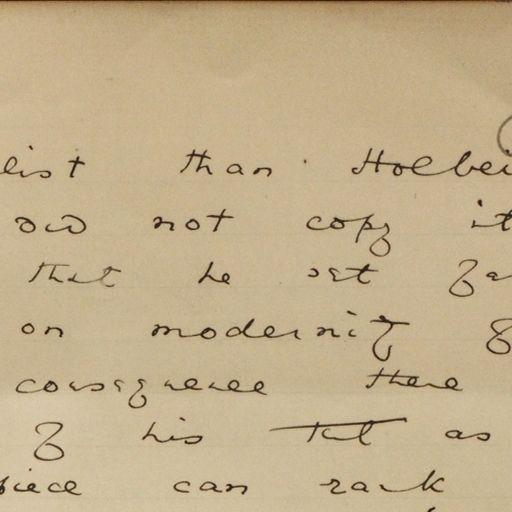 list than Holbei
did not copy it
that he set
on modernity
consequence there
of his as
piece can rank